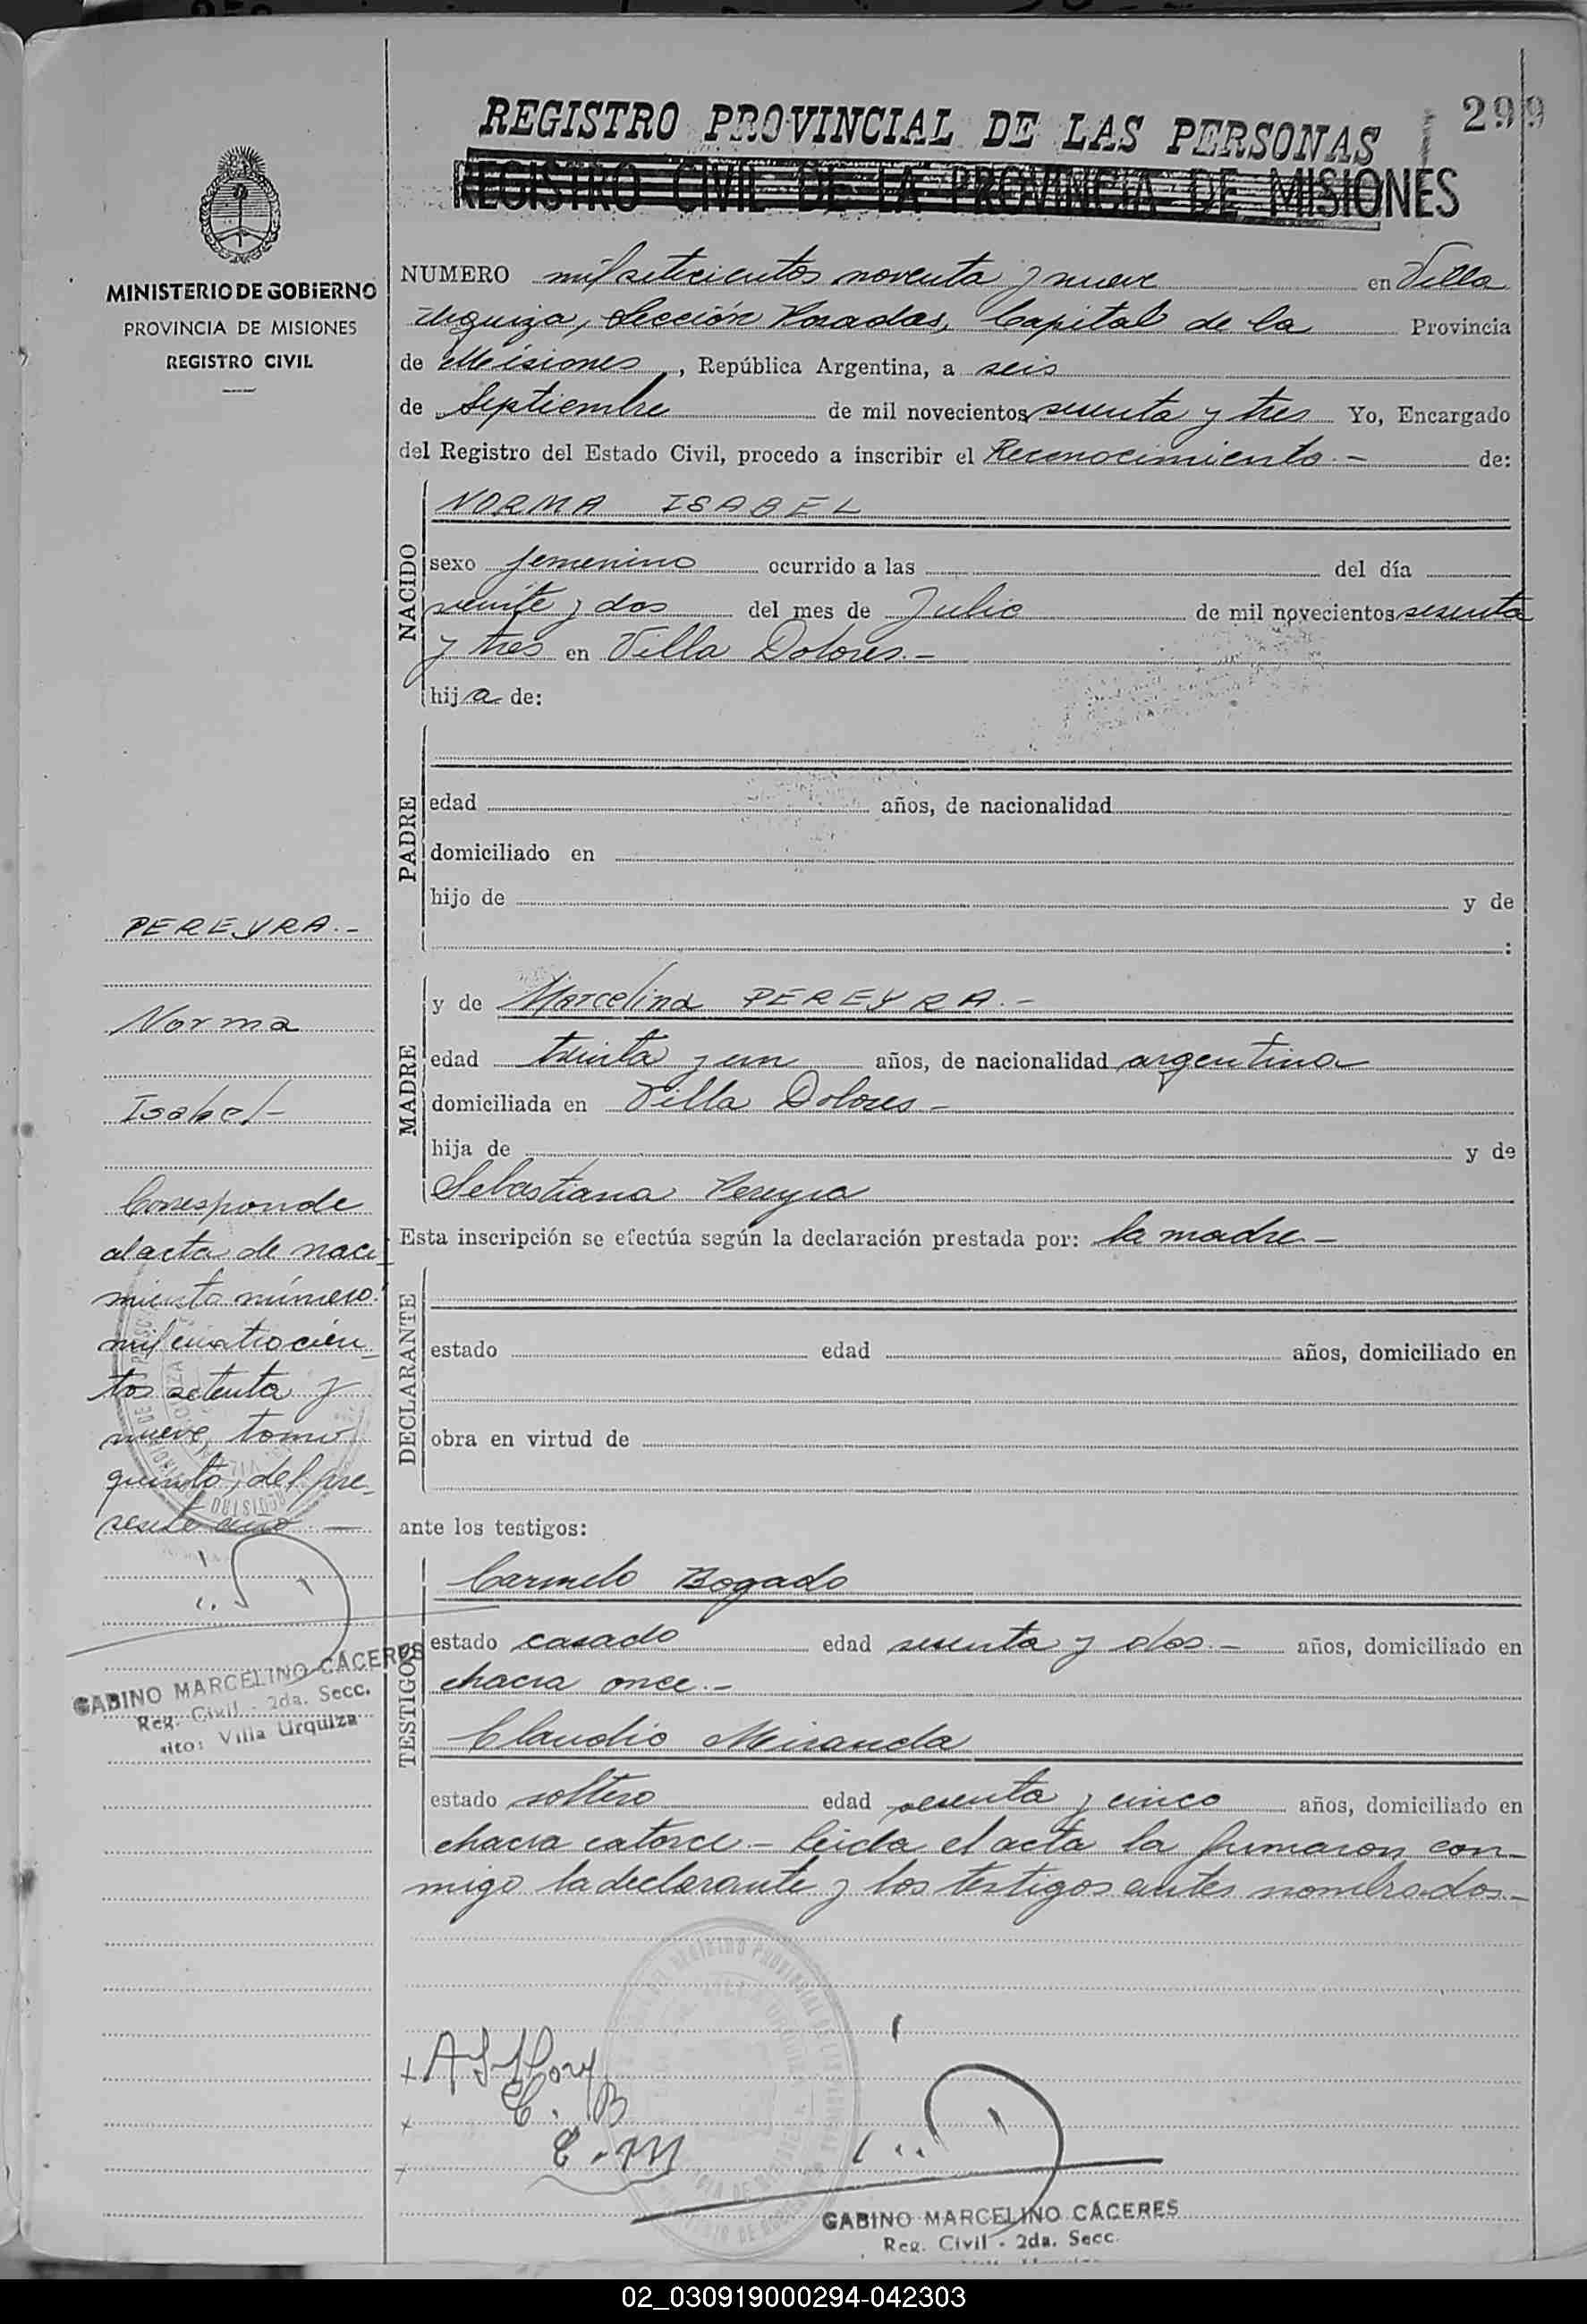 299
REGISTRO PROVINCIAL DE LAS PERSONAS
REGISTRO CIVIL DE LA PROVINCIA DE MISIONES
MINISTERIO DE GOBIERNO
PROVINCIA DE MISIONES
REGISTRO CIVIL
NUMERO mil setecientos noventa y nueve en Villa
Urquiza, Sección Posadas, Capital de la Provincia
de Misiones, República Argentina, a seis
de Septiembre de mil novecientos sesenta y tres Yo, Encargado
del Registro del Estado Civil, procedo a inscribir el Reconocimiento.- de:
NACIDO
NORMA ISABEL
sexo femenino ocurrido a las del día
veinte y dos del mes de Julio de mil novecientos sesenta
y tres en Villa Dolores.-
hija de:
PADRE
edad años, de nacionalidad
domiciliado en
hijo de y de
:
MADRE
y de Marcelina PEREYRA.-
edad treinta y un años, de nacionalidad argentina
domiciliada en Villa Dolores-
hija de y de
Sebastiana Pereyra
Esta inscripción se efectúa según la declaración prestada por: la madre-
DECLARANTE
estado edad años, domiciliado en
obra en virtud de
ante los testigos:
TESTIGOS
Carmelo Bogado
estado casado edad sesenta y dos.- años, domiciliado en
chacra once.-
Claudio Miranda
estado soltero edad sesenta y cinco años, domiciliado en
chacra catorce- Leida el acta la firmaron con-
migo la declarante y los testigos antes nombrados.-
PEREYRA.-
Norma
Isabel-
Corresponde
al acta de naci
miento número:
mil cuatrocien-
tos setenta y
nueve, tomo
quinto, del pre-
sente año.-
GABINO MARCELINO CÁCERES
Reg. Civil - 2da. Secc.
Villa Urquiza
C. B
C. M
GABINO MARCELINO CÁCERES
Reg. Civil - 2da. Secc.
02_030919000294-042303